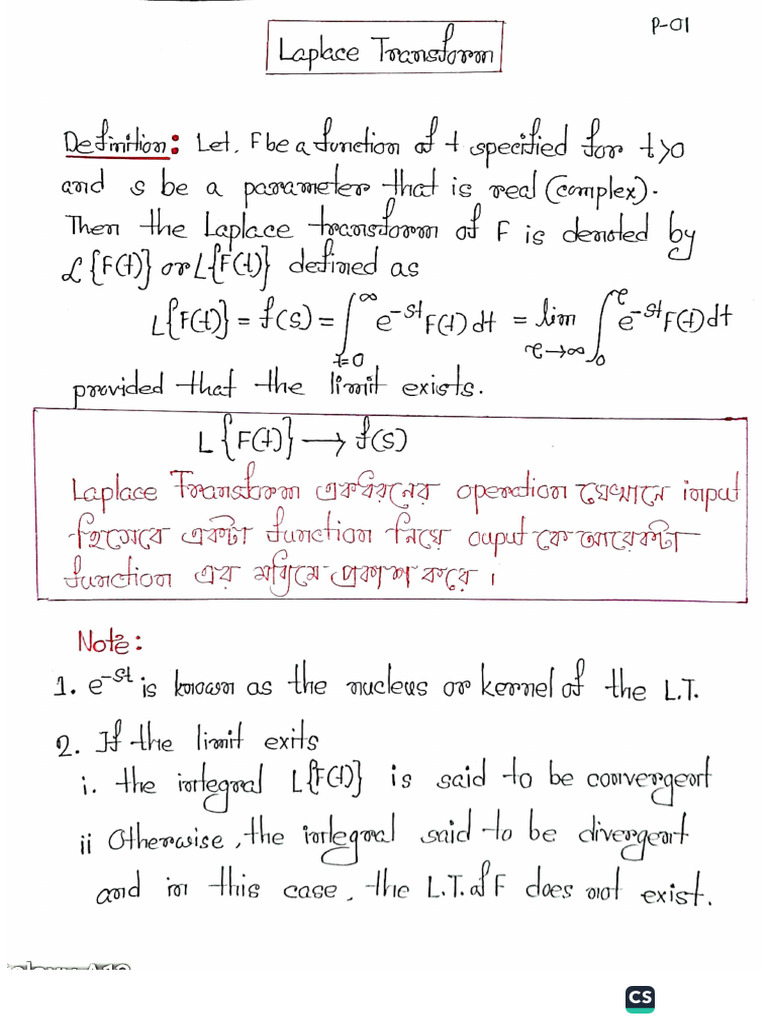 P-01
Laplace Transform
Definition: Let, F be a function of t specified for t>0
and s be a parameter that is real (complex).
Then the Laplace transform of F is denoted by
ℒ{F(t)} or L{F(t)} defined as
L{F(t)} = f(s) = ∫_{t=0}^{∞} e^{-st} F(t) dt = lim_{τ→∞} ∫_0^τ e^{-st} F(t) dt
provided that the limit exists.
L{F(t)} → f(s)
Laplace Transform একধরনের operation যেখানে input
হিসেবে একটা function নিয়ে ouput কে আরেকটা
function এর মাধ্যমে প্রকাশ করে।
Note:
1. e^{-st} is known as the nucleus or kernel of the L.T.
2. If the limit exits
i. the integral L{F(t)} is said to be convergent
ii Otherwise, the integral said to be divergent
and in this case, the L.T. of F does not exist.
CS